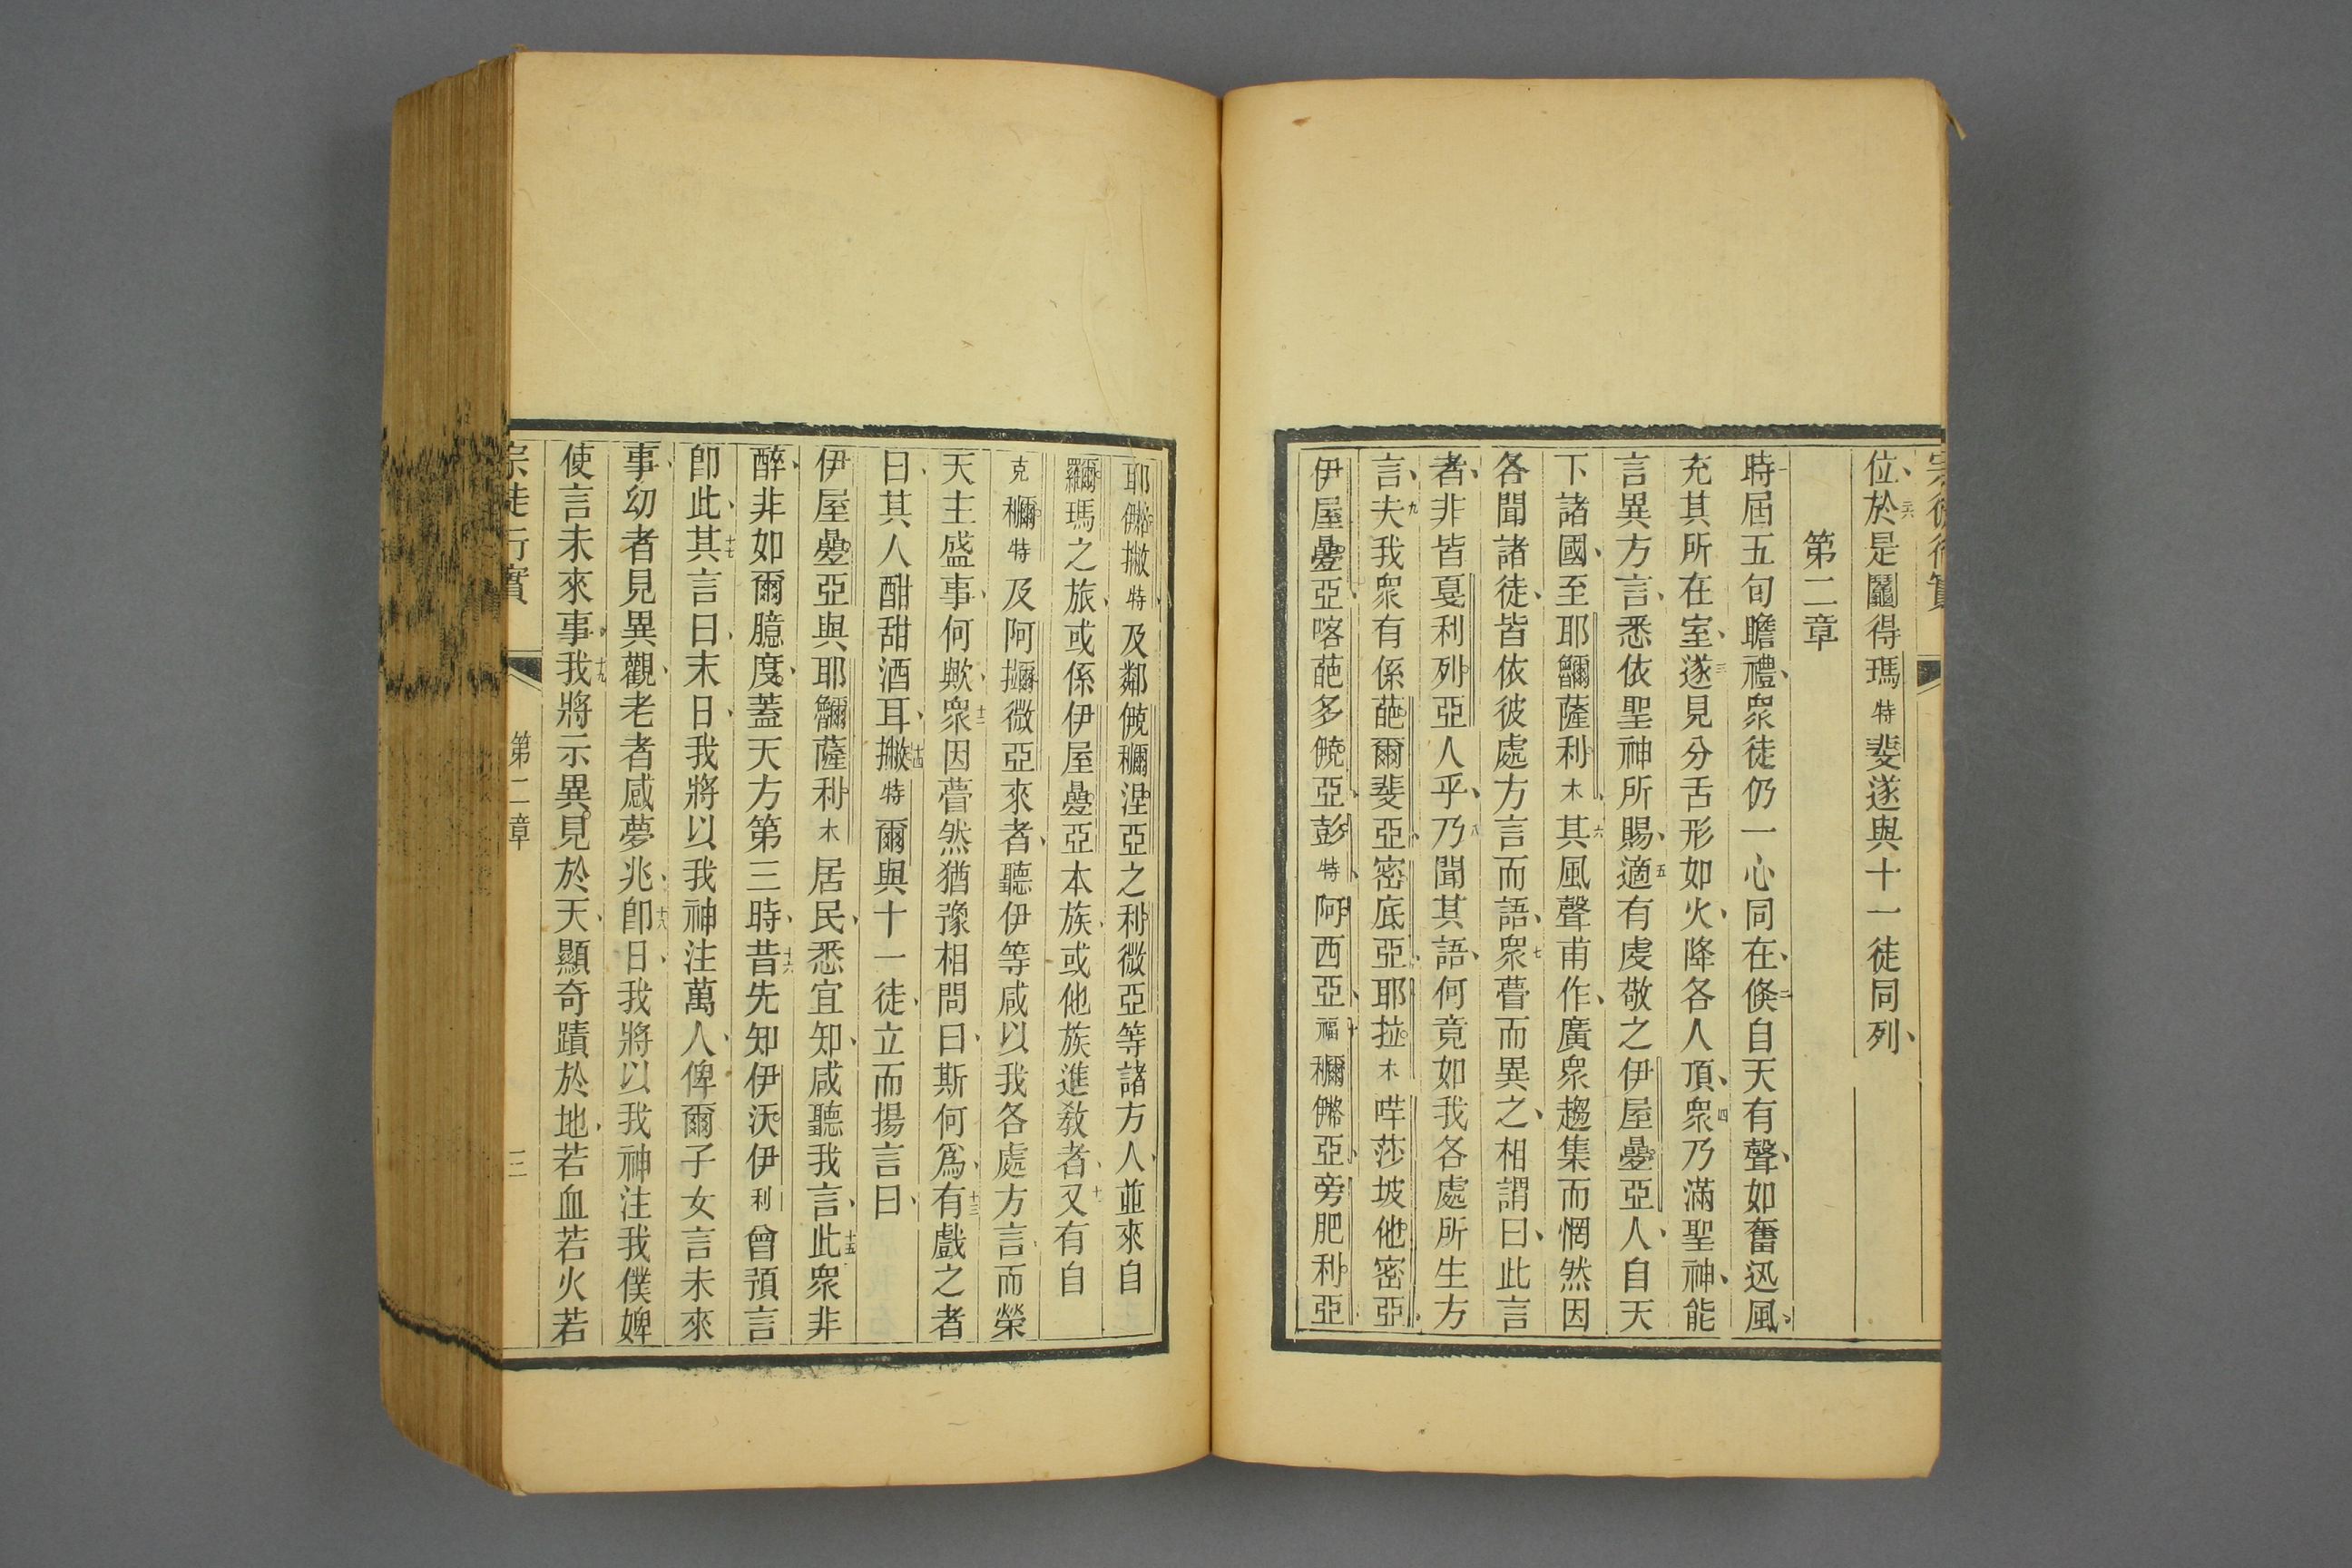 宗徒行實
位於是鬮得瑪特斐遂與十一徒同列
第二章
時屆五旬瞻禮衆徒仍一心同在二倐自天有聲如奮迅風
充其所在室三遂見分舌形如火降各人頂四衆乃滿聖神能
言異方言悉依聖神所賜五適有虔敬之伊屋疊亞人自天
下諸國至耶薩利木六其風聲甫作廣衆趨集而惘然因
各聞諸徒皆依彼處方言而語七衆瞢而異之相謂曰此言
者非皆戛利列亞人乎八乃聞其語何竟如我各處所生方
言九夫我衆有係葩爾斐亞密底亞耶拉木哶莎坡他密亞
伊屋疊亞喀葩多亞彭特阿西亞十福亞旁肥利亞
耶撇特及鄰涅亞之利微亞等諸方人並來自
瑪之旅或係伊屋疊亞本族或他族進敎者十一又有自
克特及阿微亞來者聽伊等咸以我各處方言而榮
天主盛事何歟十二衆因瞢然猶豫相問曰斯何爲十三有戲之者
曰其人酣甜酒耳十四撇特爾與十一徒立而揚言曰
伊屋疊亞與耶薩利木居民悉宜知咸聽我言十五此衆非
醉非如爾臆度蓋天方第三時十六昔先知伊沃伊利曾預言
卽此十七其言曰末日我將以我神注萬人俾爾子女言未來
事幼者見異觀老者感夢兆十八卽日我將以我神注我僕婢
使言未來事十九我將示異見於天顯奇蹟於地若血若火若
宗徒行實
第二章
三